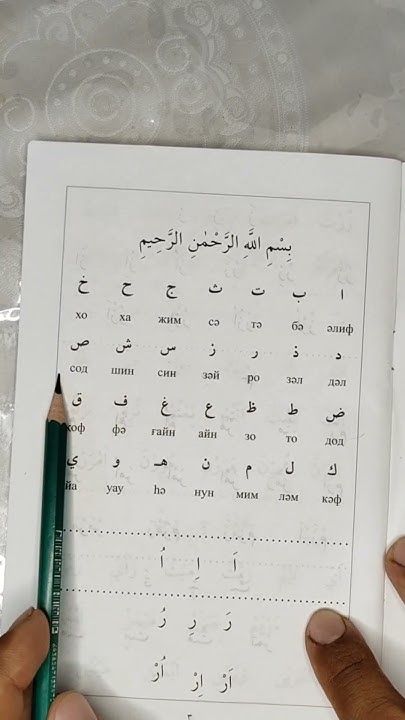 بِسْمِ اللَّهِ الرَّحْمٰنِ الرَّحِيمِ
ا ب ت ث ج ح خ
әлиф бә тә сә жим ха хо
د ذ ر ز س ش ص
дәл зәл ро зәй син шин сод
ض ط ظ ع غ ف ق
дод то зо айн ғайн фә қоф
ك ل م ن هـ و ي
кәф ләм мим нун һә уау йа
اَ اِ اُ
رَ رِ رُ
اَرْ اِرْ اُرْ
٣